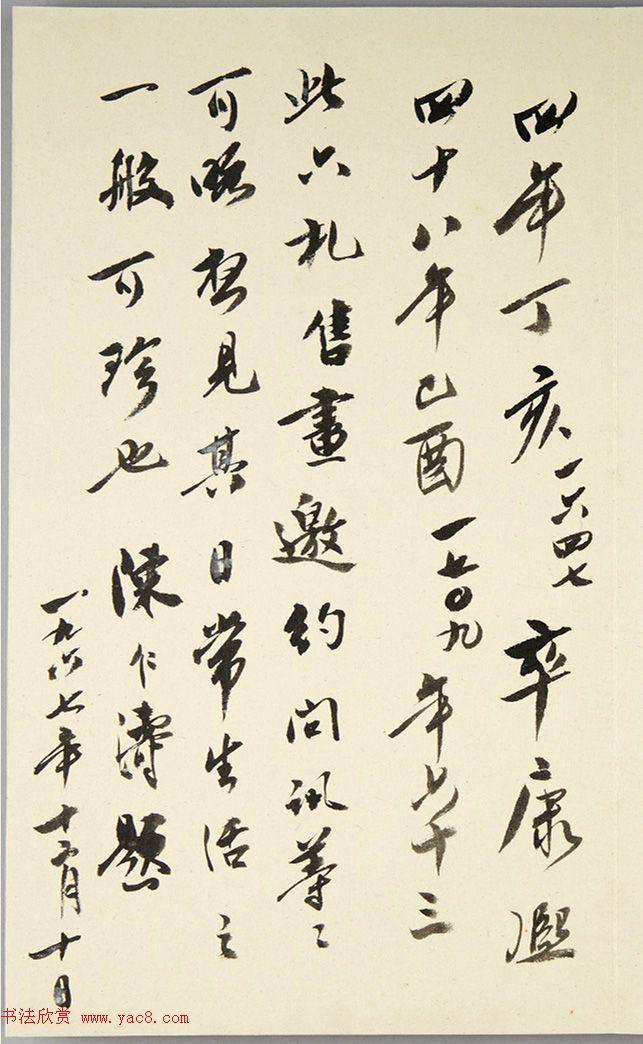 四年丁亥一六四七卒康熙
四十八年己酉一七〇九年六十三
此六札售畫邀約問訊等等
可略想見其日常生活之
一般可珍也 陳仁濤題
一九六七年十二月十日
书法欣赏 www.yac8.com